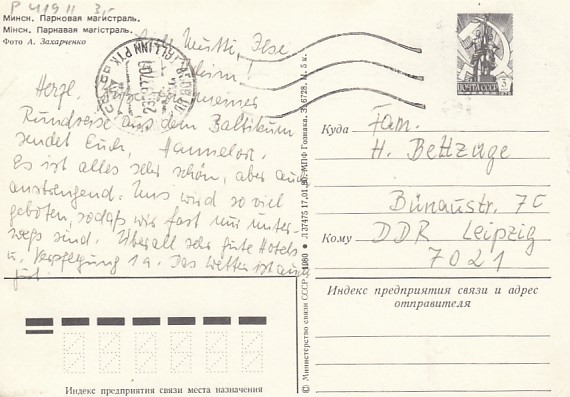 P 419 II 3,-
Минск. Парковая магистраль.
Мінск. Паркавая магістраль.
Фото А. Захарченко
Mutti, Ilse
Herzl.
Rundreise aus dem Baltikum
sendet Euch, Hannelore.
Es ist alles sehr schön, aber auch
anstrengend. Uns wird so viel
geboten, sodaß wir fast nur unter-
wegs sind. Überall sehr gute Hotels
u. Verpflegung 1a. Das Wetter ist auch
gut.
TALLINN PTK
Куда
Fam.
H. Bettzüge
Bünaustr. 7c
Кому
DDR Leipzig
7021
Индекс предприятия связи и адрес
отправителя
Индекс предприятия связи места назначения
© Министерство связи СССР.
17.01.80. МПФ Гознака. З. 6728. Ц. 5 к.